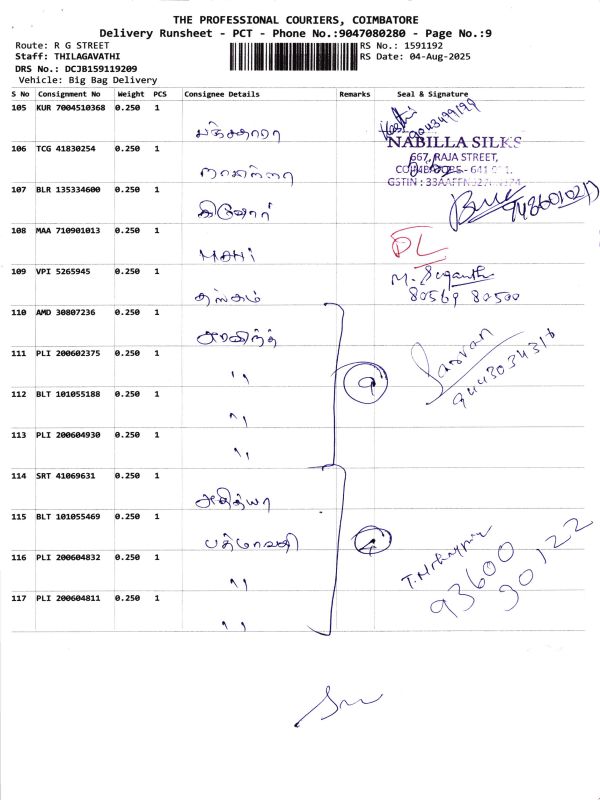 THE PROFESSIONAL COURIERS, COIMBATORE
Delivery Runsheet - PCT - Phone No.:9047080280 - Page No.:9
Route: R G STREET
Staff: THILAGAVATHI
DRS No.: DCJB159119209
Vehicle: Big Bag Delivery
RS No.: 1591192
RS Date: 04-Aug-2025
S No Consignment No Weight PCS Consignee Details Remarks Seal & Signature
105 KUR 7004510368 0.250 1
9043499199
106 TCG 41830254 0.250 1
NABILLA SILKS
667, RAJA STREET,
107 BLR 135334600 0.250 1
கிஷோர்
108 MAA 710901013 0.250 1
MAHI DL
109 VPI 5265945 0.250 1
M. Suganthi
80569 80500
110 AMD 30807236 0.250 1
அரவிந்த்
111 PLI 200602375 0.250 1
" Sarvan
9443034316
112 BLT 101055188 0.250 1
"
113 PLI 200604930 0.250 1
"
114 SRT 41069631 0.250 1
அதித்யா
115 BLT 101055469 0.250 1
பத்மாவதி
116 PLI 200604832 0.250 1
" 93600
30122
117 PLI 200604811 0.250 1
"